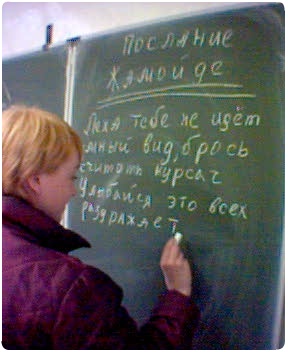 ПОСЛАНИЕ
ЖАМОЙДЕ
Лёха тебе не идёт
умный вид, брось
считать курсач
Улыбайся это всех
раздражает